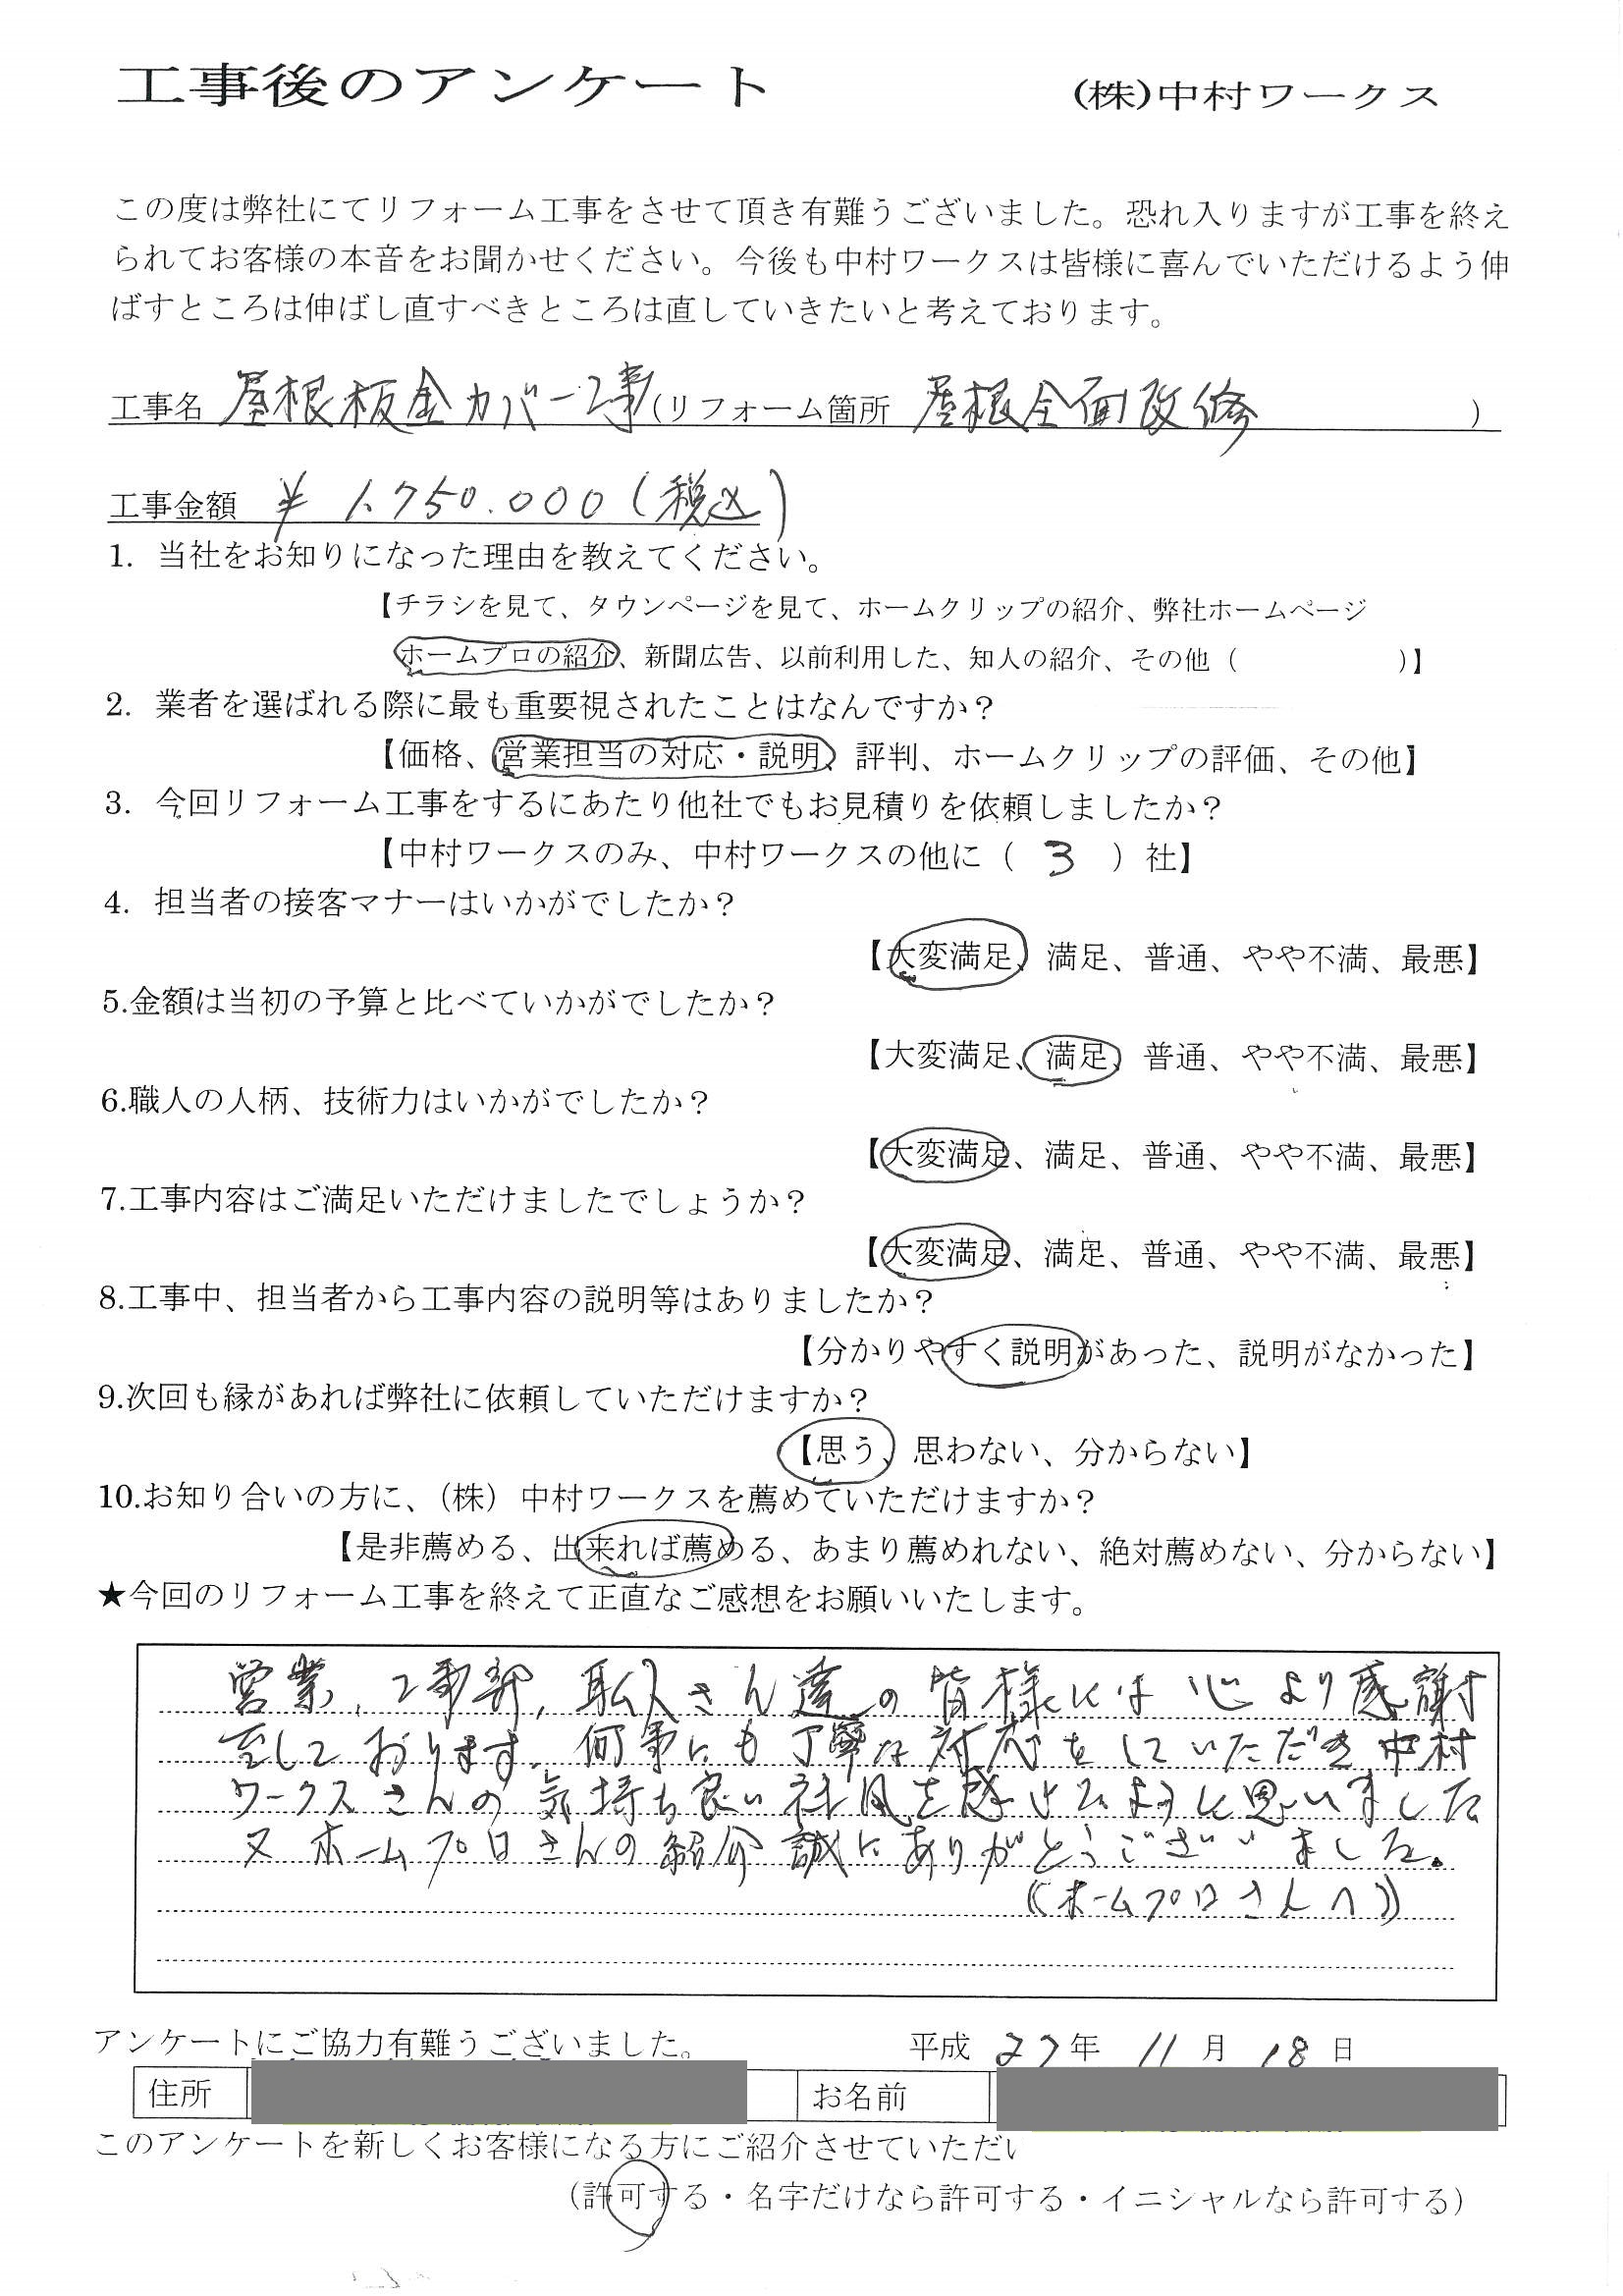 工事後のアンケート (株)中村ワークス
この度は弊社にてリフォーム工事をさせて頂き有難うございました。恐れ入りますが工事を終え
られてお客様の本音をお聞かせください。今後も中村ワークスは皆様に喜んでいただけるよう伸
ばすところは伸ばし直すべきところは直していきたいと考えております。
工事名 屋根板金カバー工事(リフォーム箇所 屋根全面改修 )
工事金額 ¥ 1.750.000(税込)
1. 当社をお知りになった理由を教えてください。
【チラシを見て、タウンページを見て、ホームクリップの紹介、弊社ホームページ
ホームプロの紹介、新聞広告、以前利用した、知人の紹介、その他( )】
2. 業者を選ばれる際に最も重要視されたことはなんですか?
【価格、営業担当の対応・説明、評判、ホームクリップの評価、その他】
3. 今回リフォーム工事をするにあたり他社でもお見積りを依頼しましたか?
【中村ワークスのみ、中村ワークスの他に( 3 )社】
4. 担当者の接客マナーはいかがでしたか?
【大変満足、満足、普通、やや不満、最悪】
5.金額は当初の予算と比べていかがでしたか?
【大変満足、満足、普通、やや不満、最悪】
6.職人の人柄、技術力はいかがでしたか?
【大変満足、満足、普通、やや不満、最悪】
7.工事内容はご満足いただけましたでしょうか?
【大変満足、満足、普通、やや不満、最悪】
8.工事中、担当者から工事内容の説明等はありましたか?
【分かりやすく説明があった、説明がなかった】
9.次回も縁があれば弊社に依頼していただけますか?
【思う、思わない、分からない】
10.お知り合いの方に、(株)中村ワークスを薦めていただけますか?
【是非薦める、出来れば薦める、あまり薦めれない、絶対薦めない、分からない】
★今回のリフォーム工事を終えて正直なご感想をお願いいたします。
営業、工事部、職人さん達の皆様には心より感謝
致しております。何事にも丁寧な対応をしていただき中村
ワークスさんの気持ち良い社風を感じたように思いました
又 ホームプロさんの紹介誠にありがとうございました。
((ホームプロさんへ))
アンケートにご協力有難うございました。 平成 27年 11月 18日
住所 お名前
このアンケートを新しくお客様になる方にご紹介させていただい
(許可する・名字だけなら許可する・イニシャルなら許可する)